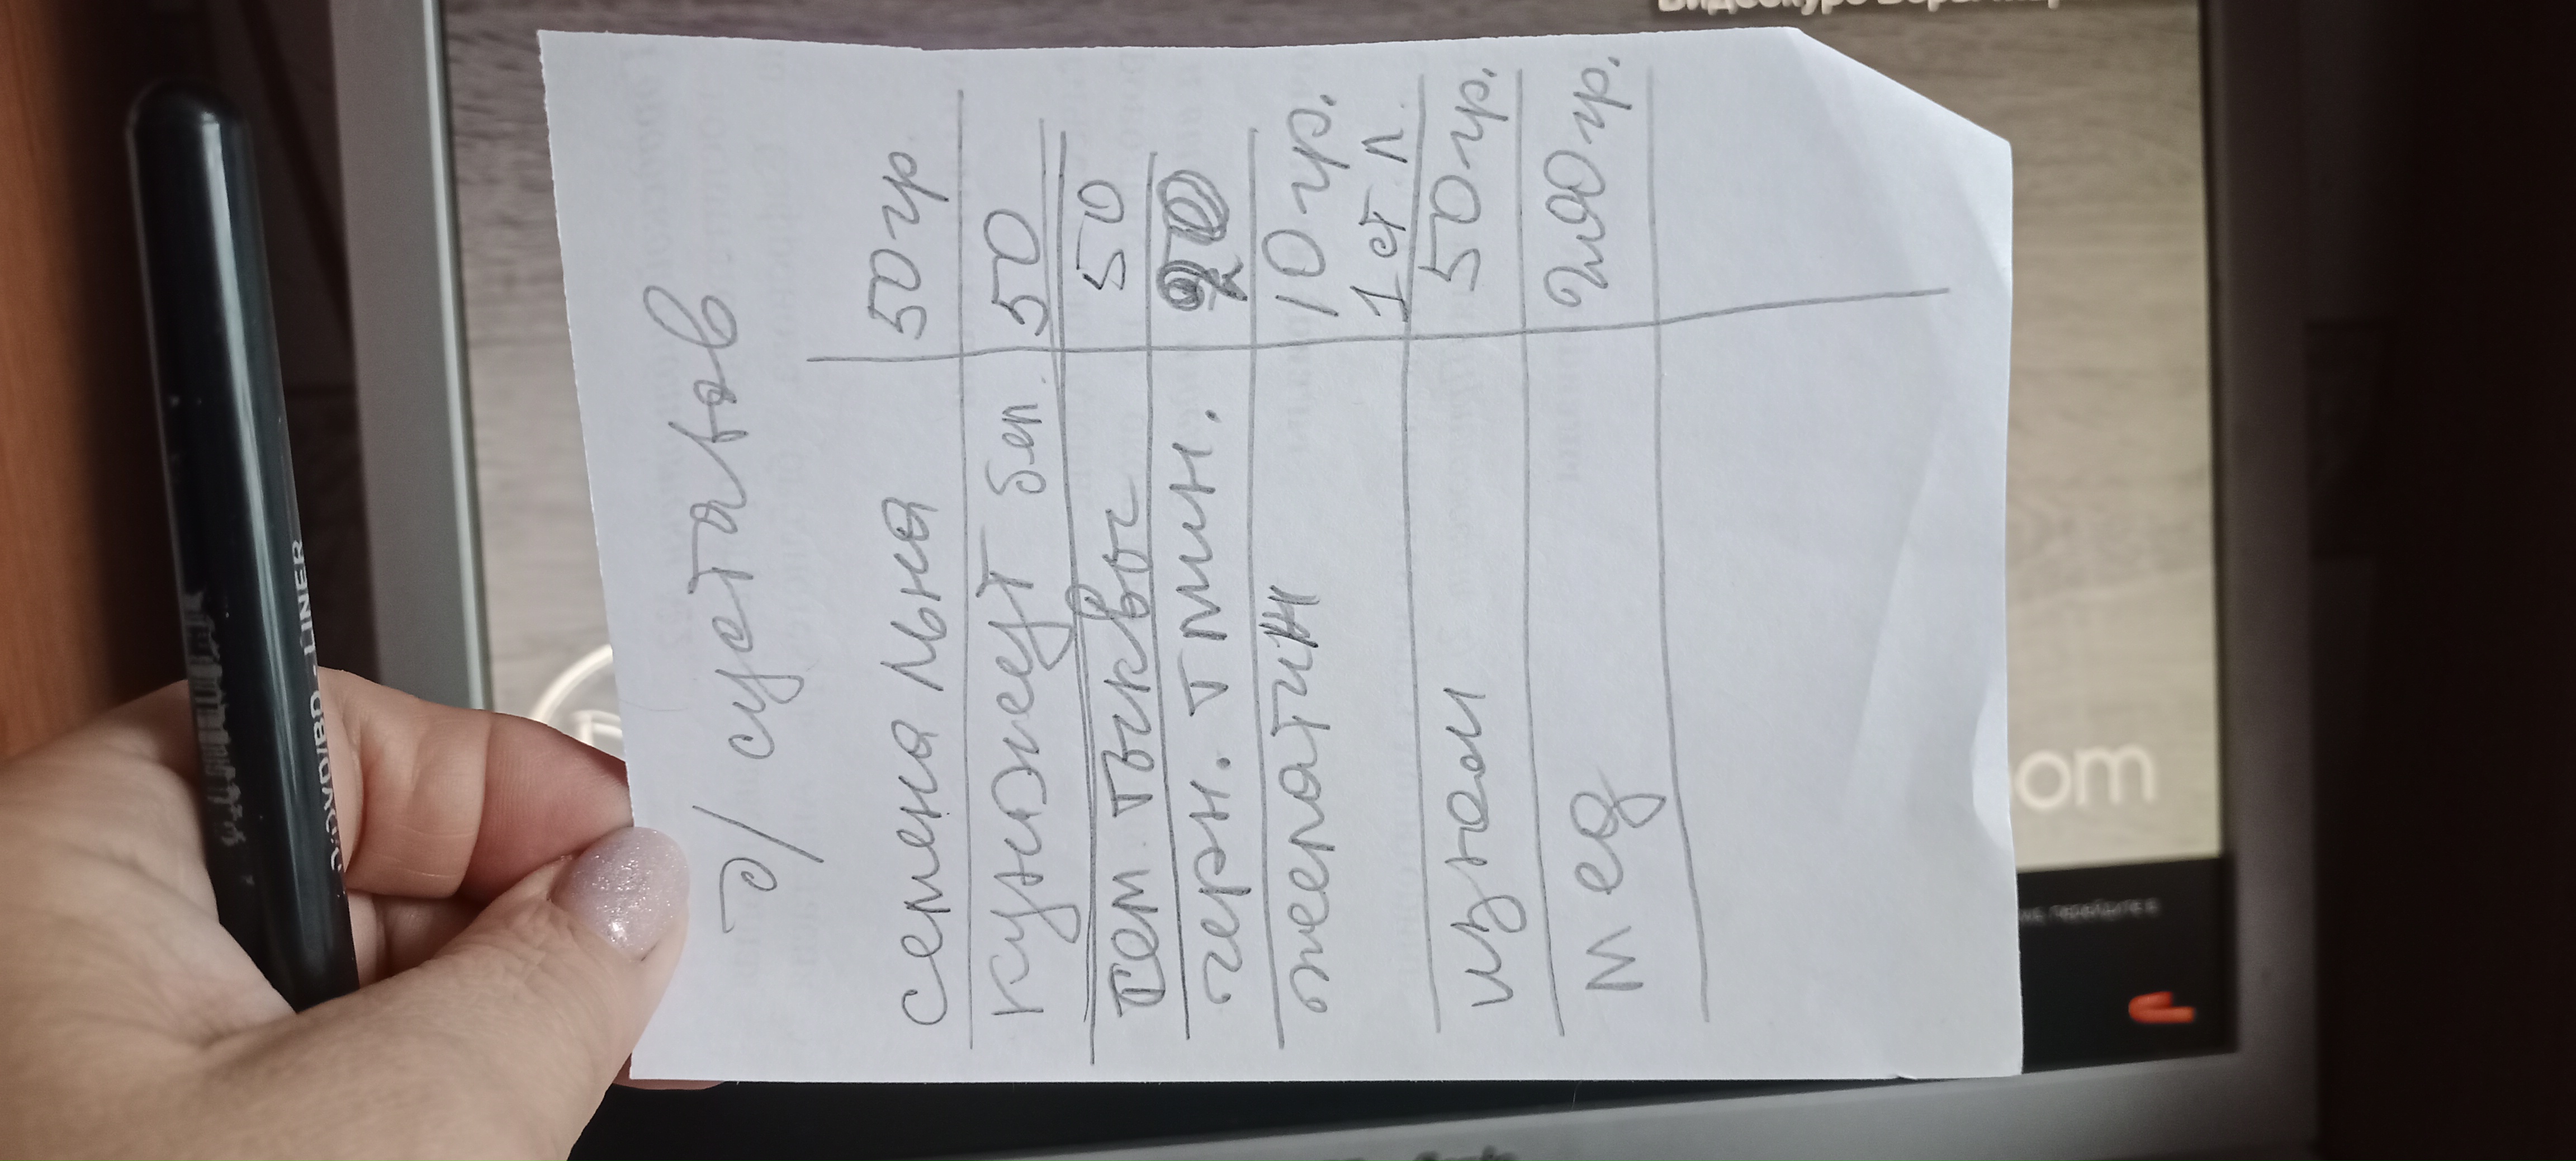 DVD/BD - LINER
д/ суставов
семена льна 50 гр.
кунжут бел. 50
сем тыквы 50
черн. тмин. 20
желатин 10 гр.
1 ст л.
изюм 50 гр.
мед 200 гр.
om